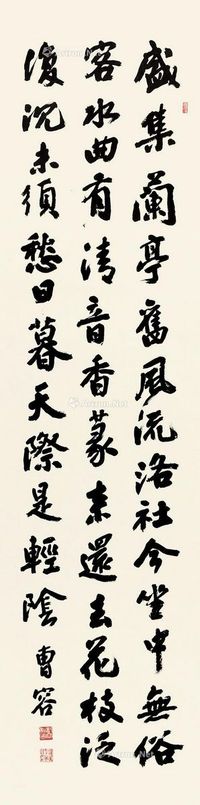 盛集蘭亭舊風流洛社今坐中無俗
客水曲有清音香篆来還去花枝泛
復沉未須愁日暮天際是輕陰 曹容